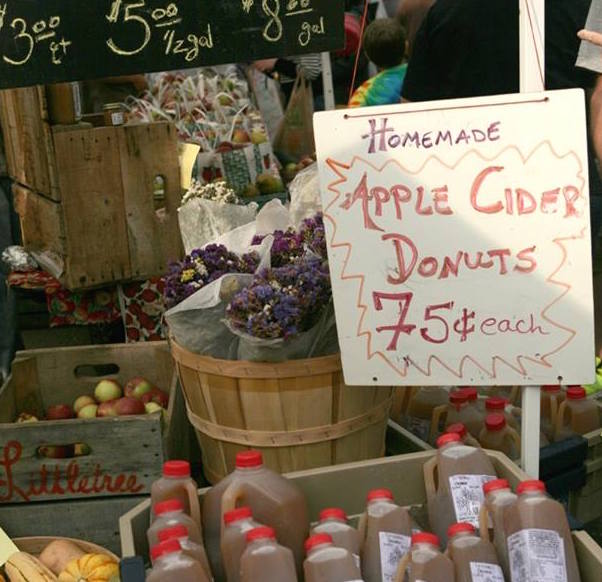 $3.00 qt $5.00 1/2 gal $8.00 gal
HOMEMADE
APPLE CIDER
DONUTS
75¢ each
Littletree